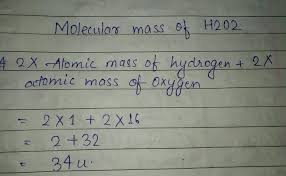 Molecular mass of H2O2
2X Atomic mass of hydrogen + 2X
actomic mass of Oxygen
= 2 X 1 + 2 X 16
= 2 + 32
= 34 u.